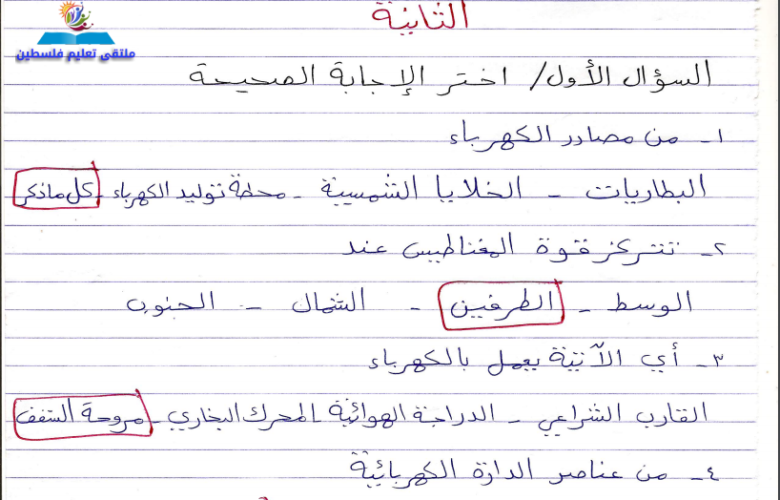 الثانية
ملتقى تعليم فلسطين
السؤال الأول/ اختر الإجابة الصحيحة
١- من مصادر الكهرباء
البطاريات - الخلايا الشمسية - محطة توليد الكهرباء - كل ماذكر
٢- تتركز قوة المغناطيس عند
الوسط - الطرفين - الشمال - الجنوب
٣- أي الآتية يعمل بالكهرباء
القارب الشراعي - الدراجة الهوائية - المحرك البخاري - مروحة السقف
٤- من عناصر الدارة الكهربائية